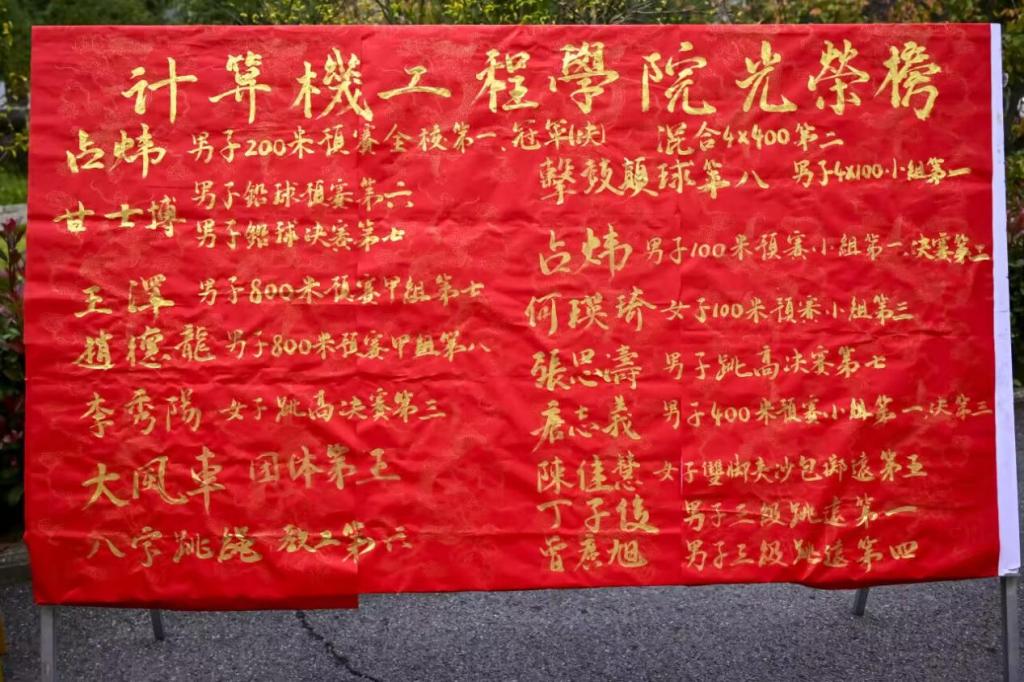 計算機工程學院光榮榜
占炜 男子200米預賽全校第一、冠軍(决)
甘士博 男子鉛球預賽第六
男子鉛球决賽第七
王澤 男子800米預賽甲組第七
趙德龍 男子800米預賽甲組第八
李秀陽 女子跳高决賽第三
大風車 团体第五
八字跳繩 第六
混合4x400第二
擊鼓顛球第八 男子4x100小組第一
占炜 男子100米預賽小組第一、决賽第二
何瑛琦 女子100米預賽小組第三
張思濤 男子跳高决賽第七
詹志義 男子400米預賽小組第一、决第三
陳佳慧 女子雙脚夾沙包擲遠第五
丁子俊 男子三級跳遠第一
曾彥旭 男子三級跳遠第四